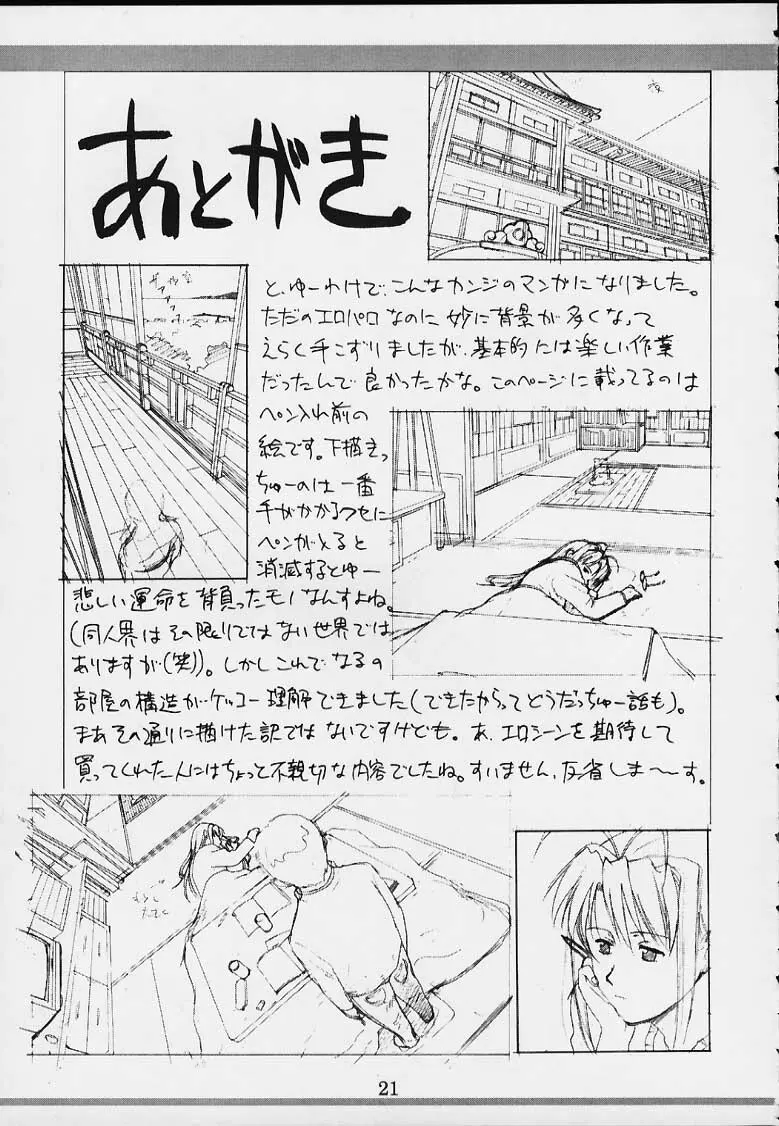 あとがき
夜
と、ゆーわけで、こんなカンジのマンガになりました。
ただのエロパロなのに妙に背景が多くなって
えらく手こずりましたが、基本的には楽しい作業
だったんで良かったかな。このページに載ってるのは
ペン入れ前の
絵です。下描きっ
ちゅーのは一番
手がかかるクセに
ペンが入ると
消滅するとゆー
悲しい運命を背負ったモノなんすよね。
(同人界はその限りではない世界では
ありますが(笑))。しかしこれでなるの
部屋の構造がケッコー理解できました(できたからってどうだっちゅー話も)。
まあその通りに描けた訳ではないですけども。あ、エロシーンを期待して
買ってくれた人にはちょっと不親切な内容でしたね。すいません、反省しま〜す。
21